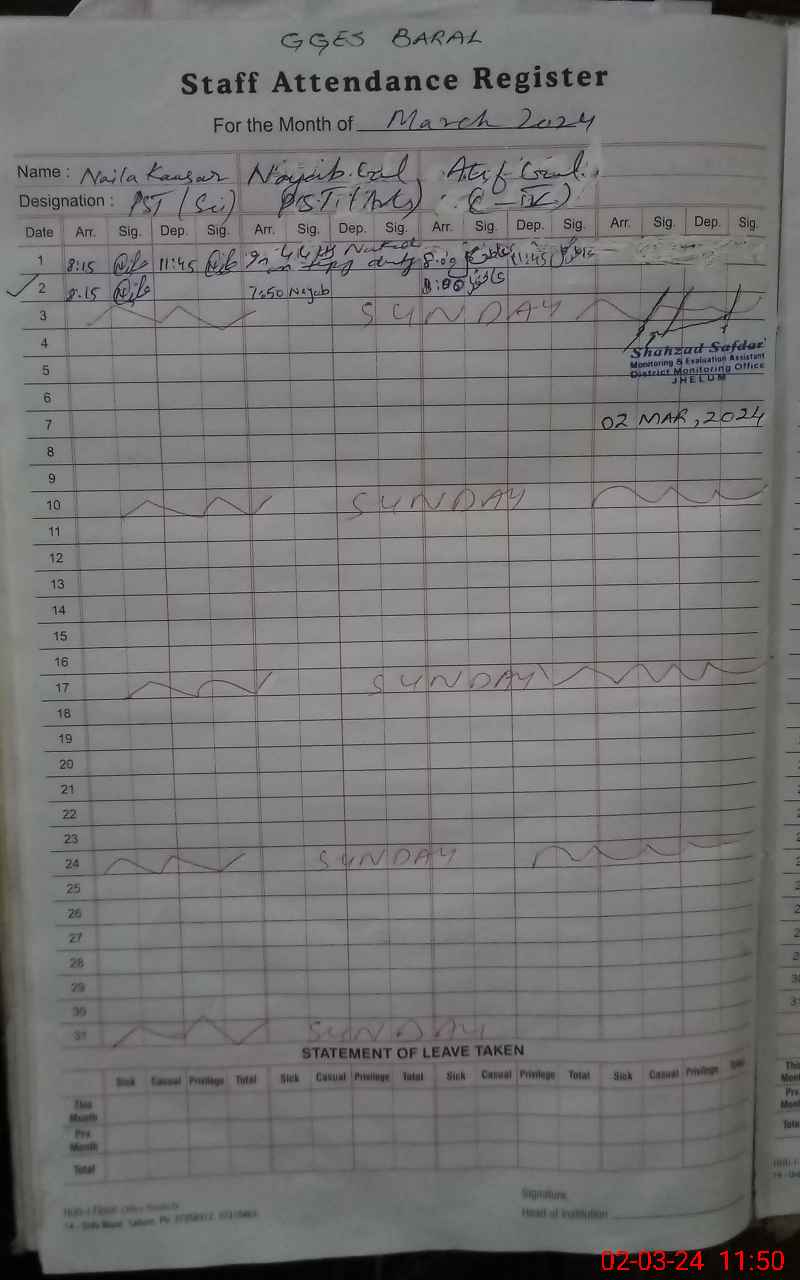 GGES BARAL
Staff Attendance Register
For the Month of March 2024
Name : Naila Kausar Nayab Gul Atif Gul
Designation : PST (Sci) PST (Arts) C-IV
Date Arr. Sig. Dep. Sig. Arr. Sig. Dep. Sig. Arr. Sig. Dep. Sig. Arr. Sig. Dep. Sig.
1 8:15 11:45 duty 11:45
2 8:15 7:50 Nayab 8:00
3 SUNDAY
4
Shahzad Safdar
Monitoring & Evaluation Assistant
5
District Monitoring Office
JHELUM
6
7 02 MAR, 2024
8
9
10 SUNDAY
11
12
13
14
15
16
17 SUNDAY
18
19
20
21
22
23
24 SUNDAY
25
26
27
28
29
30
31 SUNDAY
STATEMENT OF LEAVE TAKEN
Sick Casual Privilege Total Sick Casual Privilege Total Sick Casual Privilege Total Sick Casual Privilege Total
This Month
Pre Month
Total
Signature
Head of Institution
02-03-24 11:50